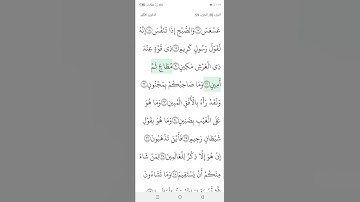 عَسْعَسَ ۝ وَالصُّبْحِ إِذَا تَنَفَّسَ ۝ إِنَّهُ
لَقَوْلُ رَسُولٍ كَرِيمٍ ۝ ذِي قُوَّةٍ عِنْدَ
ذِي الْعَرْشِ مَكِينٍ ۝ مُطَاعٍ ثَمَّ
أَمِينٍ ۝ وَمَا صَاحِبُكُمْ بِمَجْنُونٍ ۝
وَلَقَدْ رَآهُ بِالْأُفُقِ الْمُبِينِ ۝ وَمَا هُوَ
عَلَى الْغَيْبِ بِضَنِينٍ ۝ وَمَا هُوَ بِقَوْلِ
شَيْطَانٍ رَجِيمٍ ۝ فَأَيْنَ تَذْهَبُونَ ۝
إِنْ هُوَ إِلَّا ذِكْرٌ لِلْعَالَمِينَ ۝ لِمَنْ شَاءَ
مِنْكُمْ أَنْ يَسْتَقِيمَ ۝ وَمَا تَشَاءُونَ